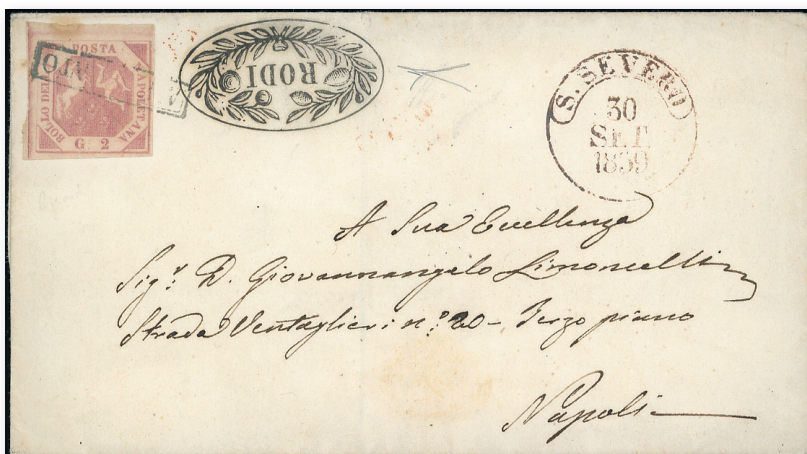 POSTA
NAPOLETANA
BOLLO DELLA
G. 2
RODI
S. SEVERO
30
SET
1859
A Sua Eccellenza
Sigr. D. Giovannangelo Limoncelli
Strada Ventaglieri no. 20 - Terzo piano
Napoli